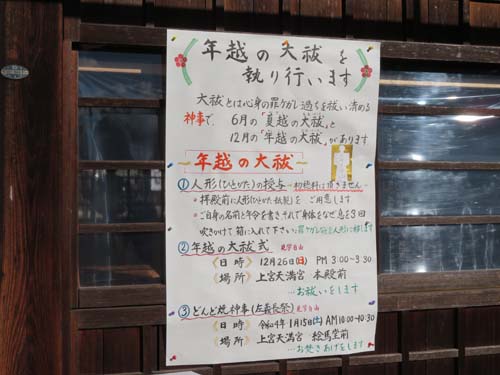 年越の大祓を
執り行います
大祓とは心身の罪ケガレ過ちを祓い清める
神事で、6月の「夏越の大祓」と
12月の「年越の大祓」があります
年越の大祓
①人形(ひとかた)の授与 初穂料は頂きません
・拝殿前に人形(ひとかた・紙製)をご用意します
・ご自身の名前と年令を書きそれで身体をなで息を3回
吹きかけて箱に入れて下さい
②年越の大祓式 見学自由
《日時》12月26日(日) PM 3:00~3:30
《場所》上宮天満宮 本殿前
…お祓いをします
③どんど焼神事(左義長祭) 見学自由
《日時》令和4年1月15日(土) AM10:00~10:30
《場所》上宮天満宮 絵馬堂前
…お焚きあげをします